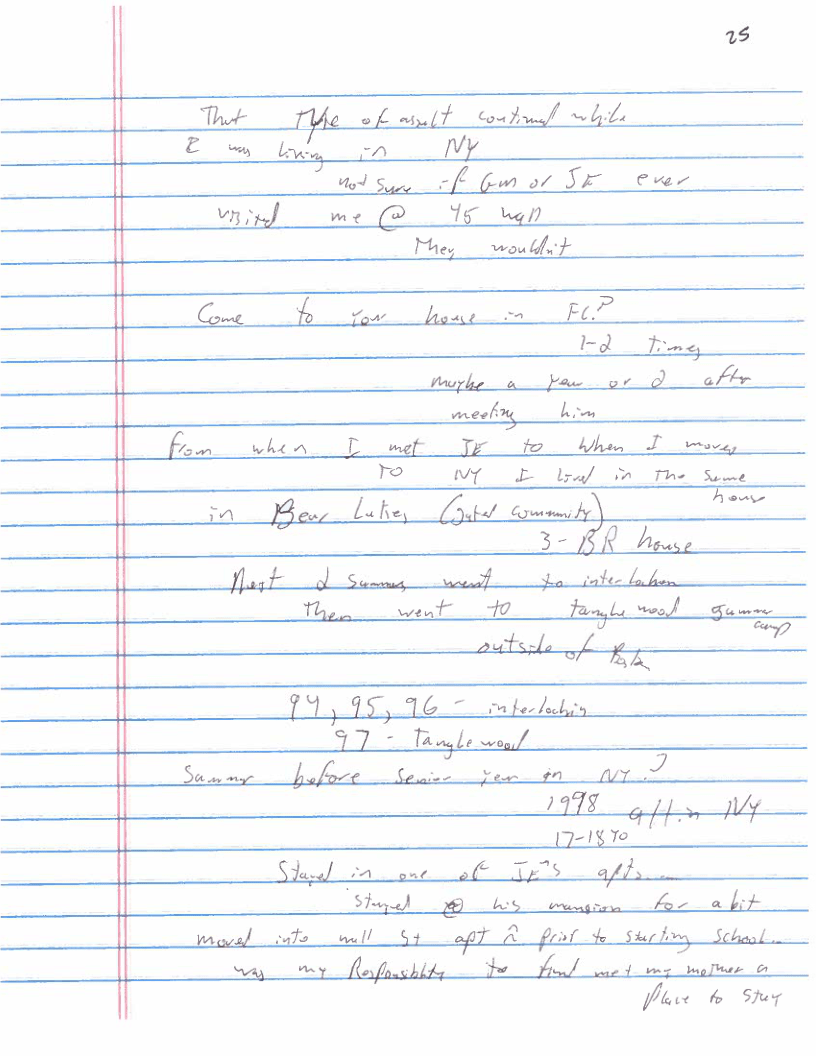 25
That Type of assult continued while
I was living in NY
not sure if GM or JE ever
visited me @ 45
They wouldn't
Come to your house in FL?
1-2 times
maybe a year or 2 after
meeting him
from when I met JE to when I moved
TO NY I lived in The same
house
in Bear Lakes (gated community)
3-BR house
Next 2 summers went to interlochen
Then went to tanglewood summer
camp
outside of
94, 95, 96 - interlochin
97 - Tanglewood
Summer before senior year in NY?
1998 all in NY
17-18 YO
Stayed in one of JE's apts
stayed @ his mansion for a bit
moved into wall St apt prior to starting school
was my Responsiblity to find me + my mother a
place to stay